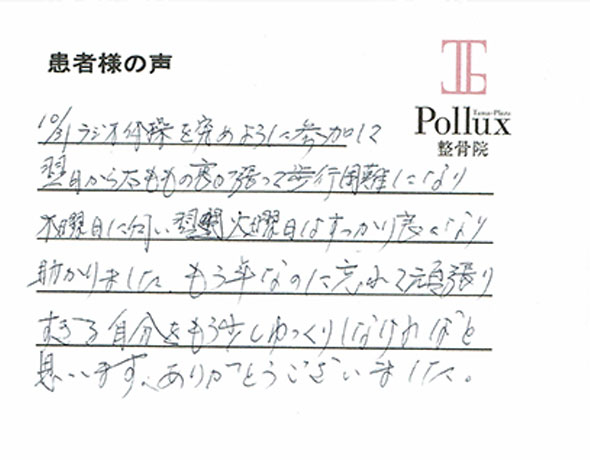 患者様の声
Tama-Plaza
Pollux
整骨院
10/31ラジオ体操を究めように参加して
翌日から右ももの裏が張って歩行困難になり
木曜日に伺い火曜日はすっかり良くなり
助かりました もう年なのに忘れて頑張り
すぎる自分をもう少しゆっくりしなければと
思います、ありがとうございました。